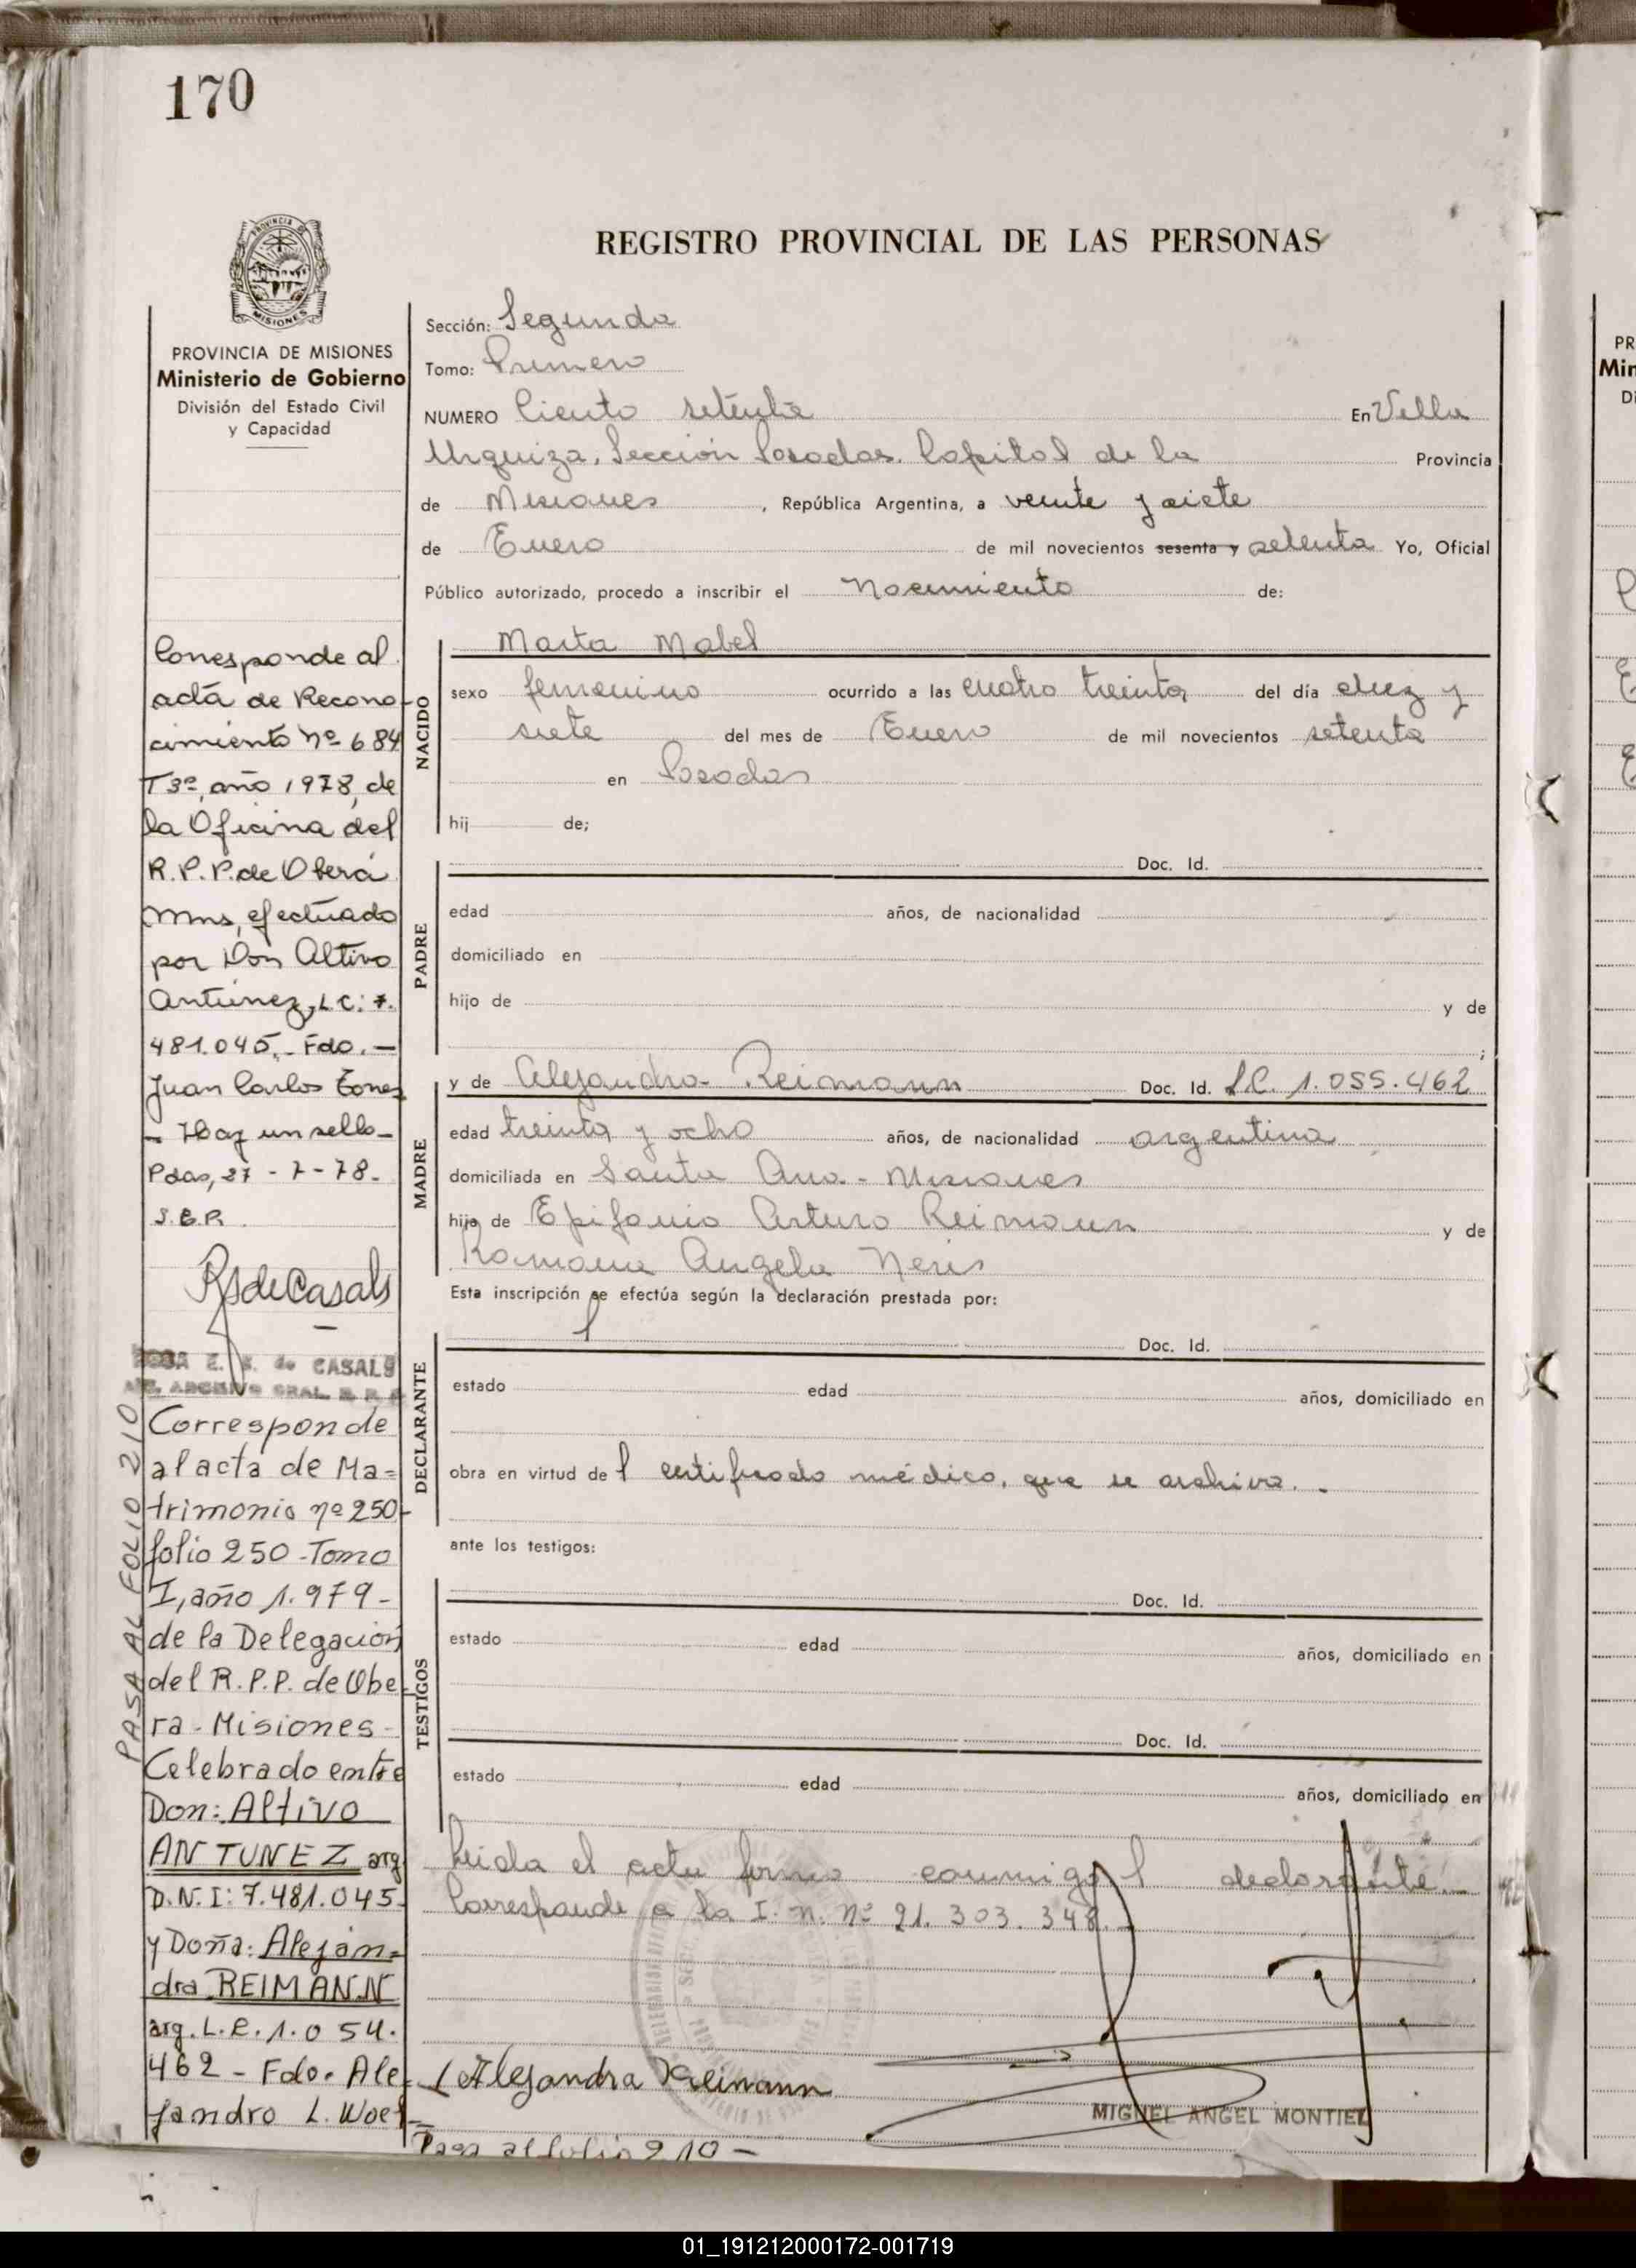 170
PROVINCIA
MISIONES
PROVINCIA DE MISIONES
Ministerio de Gobierno
División del Estado Civil
y Capacidad
REGISTRO PROVINCIAL DE LAS PERSONAS
Sección: Segunda
Tomo: Primero
NUMERO Ciento setenta En Villa
Urquiza, Sección Posadas. Capital de la Provincia
de Misiones, República Argentina, a veinte y siete
de Enero de mil novecientos sesenta y setenta Yo, Oficial
Público autorizado, procedo a inscribir el Nacimiento de:
NACIDO
Marta Mabel
sexo femenino ocurrido a las cuatro treinta del día diez y
siete del mes de Enero de mil novecientos setenta
en Posadas
hij de;
PADRE
Doc. Id.
edad años, de nacionalidad
domiciliado en
hijo de y de
;
MADRE
y de Alejandra Reimann Doc. Id. L.C. 1.055.462
edad treinta y ocho años, de nacionalidad argentina
domiciliada en Santa Ana - Misiones
hija de Epifanio Arturo Reimann y de
Ramona Angela Neris
Esta inscripción se efectúa según la declaración prestada por:
DECLARANTE
Doc. Id.
estado edad años, domiciliado en
obra en virtud del certificado médico, que se archiva. -
ante los testigos:
TESTIGOS
Doc. Id.
estado edad años, domiciliado en
Doc. Id.
estado edad años, domiciliado en
Leida el acta firma conmigo l declarante.
Corresponde a la I. N. Nº 21.303.348.
Alejandra Reimann
MIGUEL ANGEL MONTIEL
Pasa al folio 210 -
Corresponde al
acta de Recono-
cimiento Nº 684
T 3º, año 1978, de
la Oficina del
R.P.P. de Oberá
Mns, efectuado
por Don Altivo
Antúnez, L.C: 7.
481.045.- Fdo. -
Juan Carlos Torres
- Hay un sello -
Pdas, 27 - 7 - 78.
S.E.R.
RSdeCasals
ROSA E. S. de CASALS
PASA AL FOLIO 210
Corresponde
al acta de Ma=
trimonio nº 250-
folio 250 - Tomo
I, año 1.979 -
de la Delegación
del R.P.P. de Obe
ra - Misiones -
Celebrado entre
Don: Altivo
ANTUNEZ arg
D.N.I: 7.481.045.
y Doña: Aleján=
dra REIMANN
arg. L.C. 1.054.
462 - Fdo. Ale-
jandro L. Woef
PR
Min
Di
01_191212000172-001719